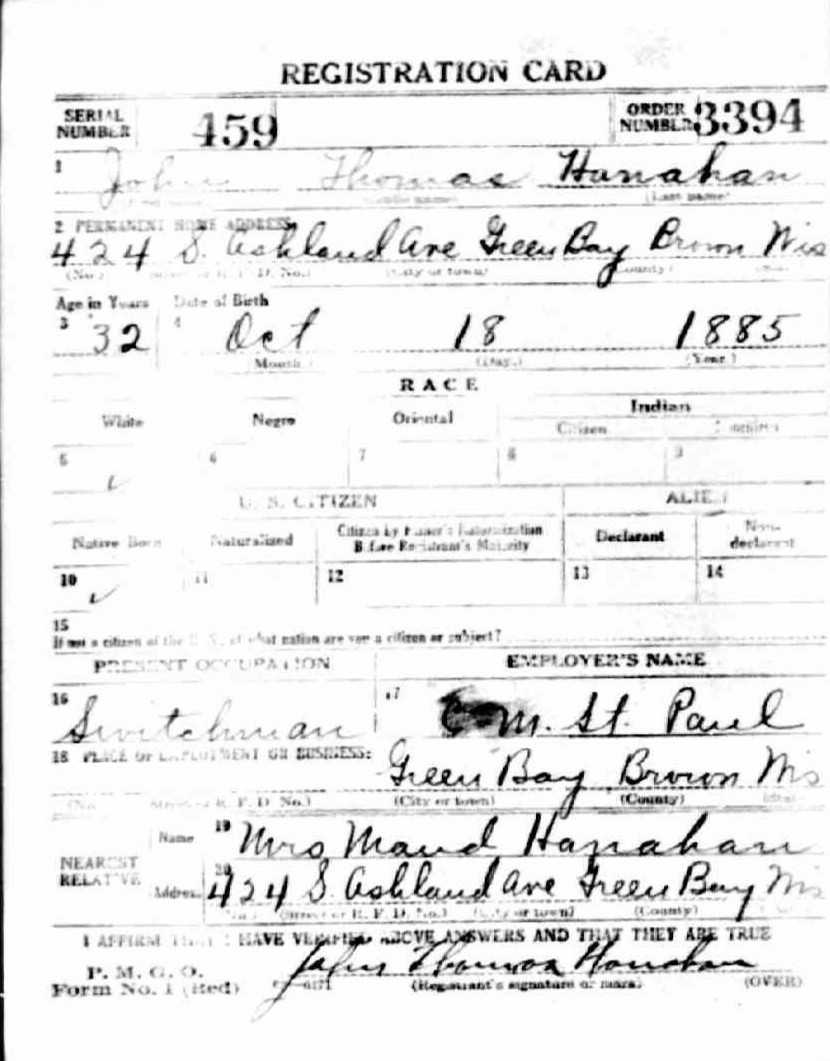 REGISTRATION CARD
SERIAL NUMBER 459 ORDER NUMBER 3394
1 John Thomas Hanahan
(Last name)
2 PERMANENT HOME ADDRESS:
424 S. Ashland Ave Green Bay Brown Wis
(No.) (Street or R. F. D. No.) (City or town) (County)
Age in Years Date of Birth
3 32 4 Oct 18 1885
(Month.) (Day.) (Year.)
RACE
White Negro Oriental Indian
Citizen
5 ✓ 6 7 8 9
U. S. CITIZEN ALIEN
Native Born Naturalized Citizen by Father's Naturalization Before Registrant's Majority Declarant Non-declarant
10 ✓ 11 12 13 14
15
If not a citizen of the U. S., of what nation are you a citizen or subject?
PRESENT OCCUPATION EMPLOYER'S NAME
16 Switchman 17 C M. St. Paul
18 PLACE OF EMPLOYMENT OR BUSINESS:
Green Bay Brown Wis
(No.) (Street or R. F. D. No.) (City or town) (County)
NEAREST RELATIVE Name 19 Mrs Maud Hanahan
Address 20 424 S. Ashland Ave Green Bay Wis
(No.) (Street or R. F. D. No.) (City or town) (County)
I AFFIRM THAT I HAVE VERIFIED ABOVE ANSWERS AND THAT THEY ARE TRUE
P. M. G. O.
Form No. 1 (Red) John Thomas Hanahan
(Registrant's signature or mark) (OVER)